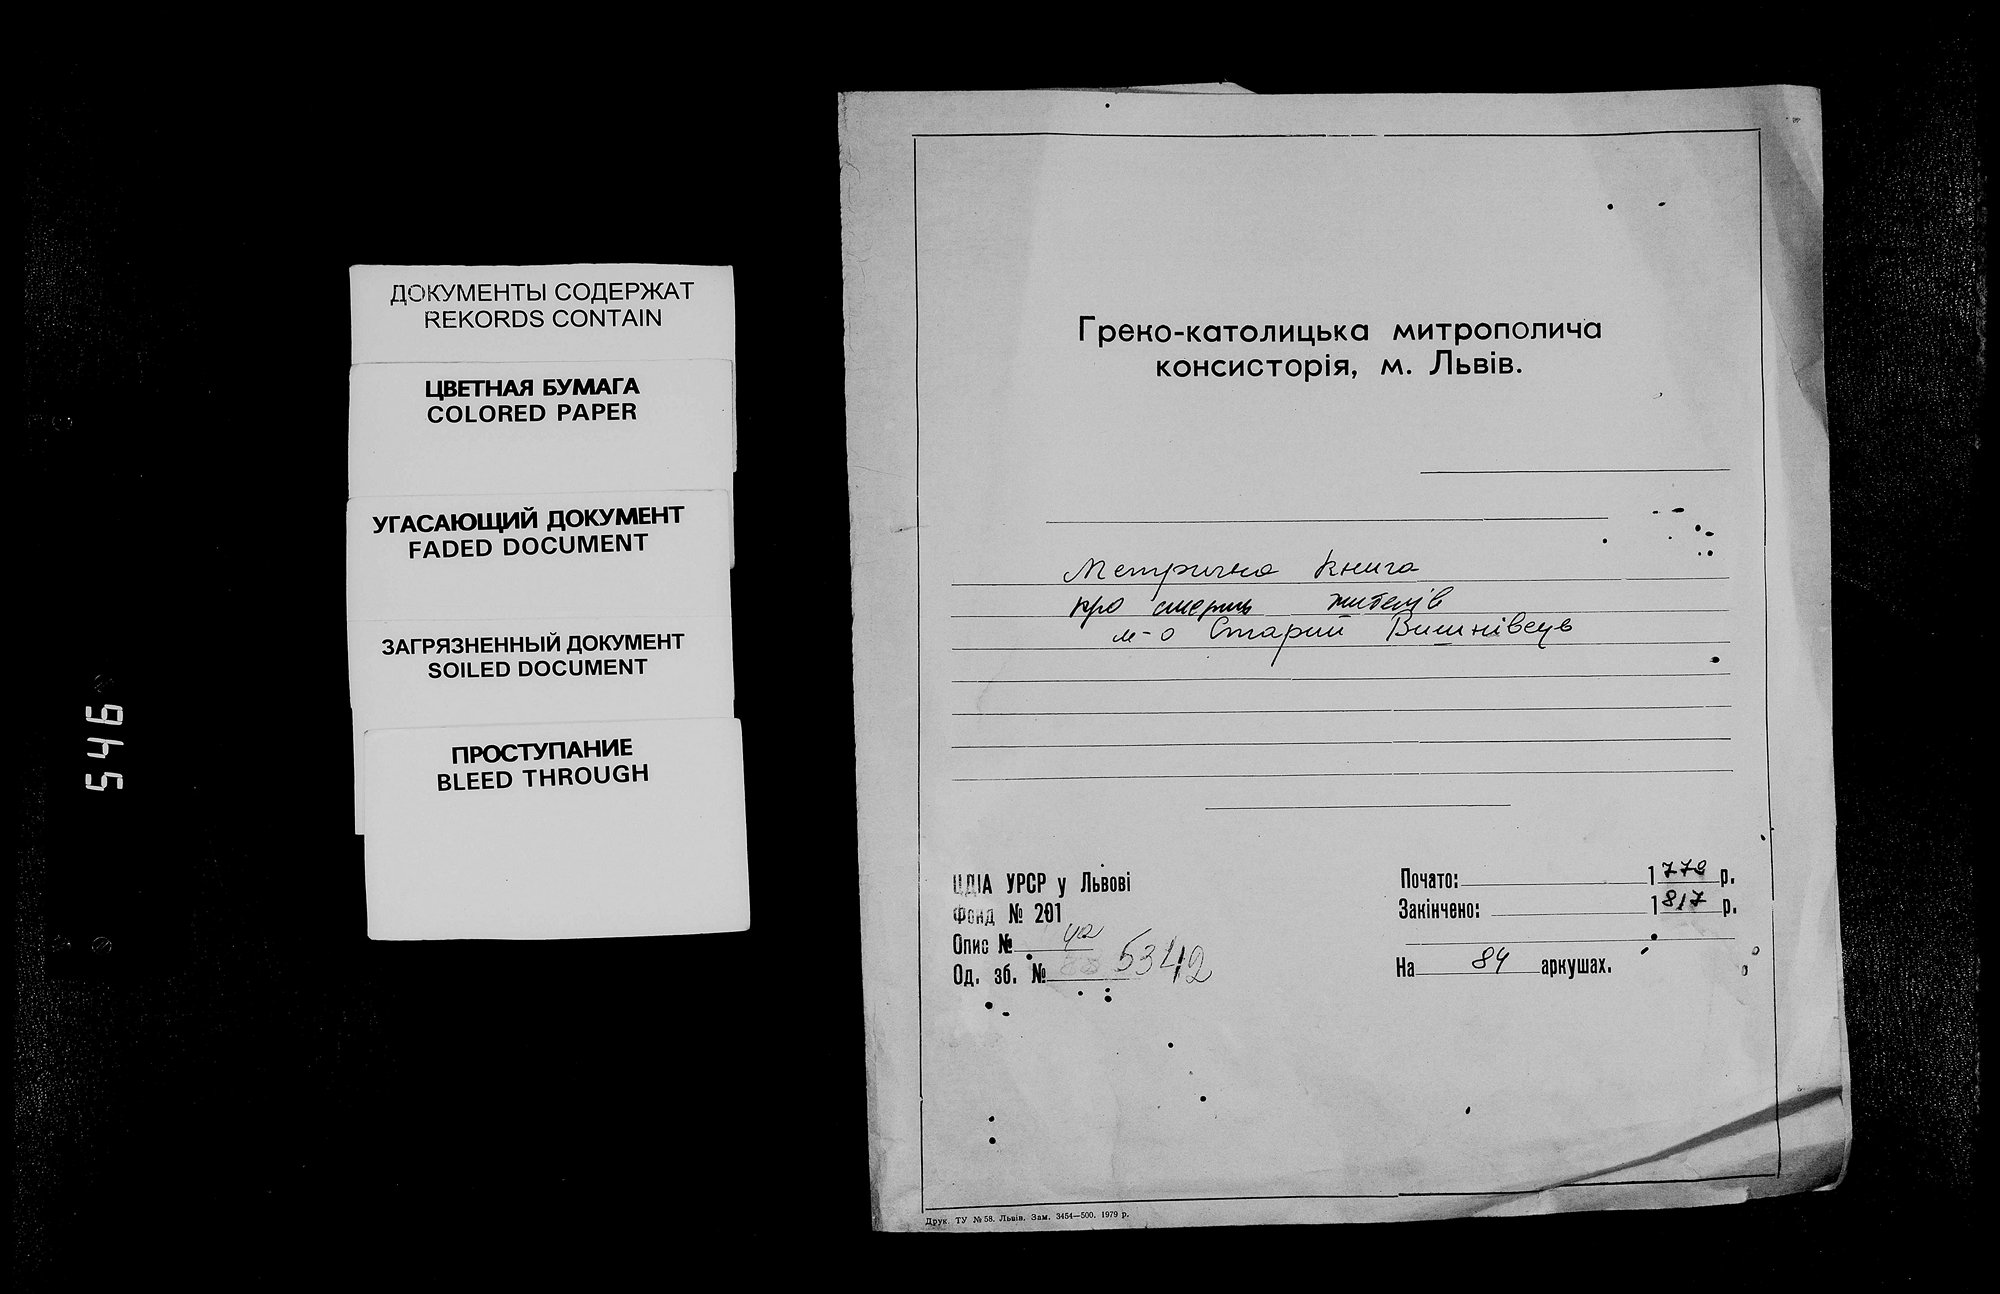 ДОКУМЕНТЫ СОДЕРЖАТ
REKORDS CONTAIN
ЦВЕТНАЯ БУМАГА
COLORED PAPER
УГАСАЮЩИЙ ДОКУМЕНТ
FADED DOCUMENT
ЗАГРЯЗНЕННЫЙ ДОКУМЕНТ
SOILED DOCUMENT
ПРОСТУПАНИЕ
BLEED THROUGH
546
Греко-католицька митрополича
консисторія, м. Львів.
Метрична книга
про смерть жителів
м-о Старий Вишнівець
ЦДІА УРСР у Львові
Фонд № 201
Опис № 4а
Од. зб. № 5342
Почато: 1779 р.
Закінчено: 1817 р.
На 84 аркушах.
Друк. ТУ № 58. Львів. Зам. 3454—500. 1979 р.